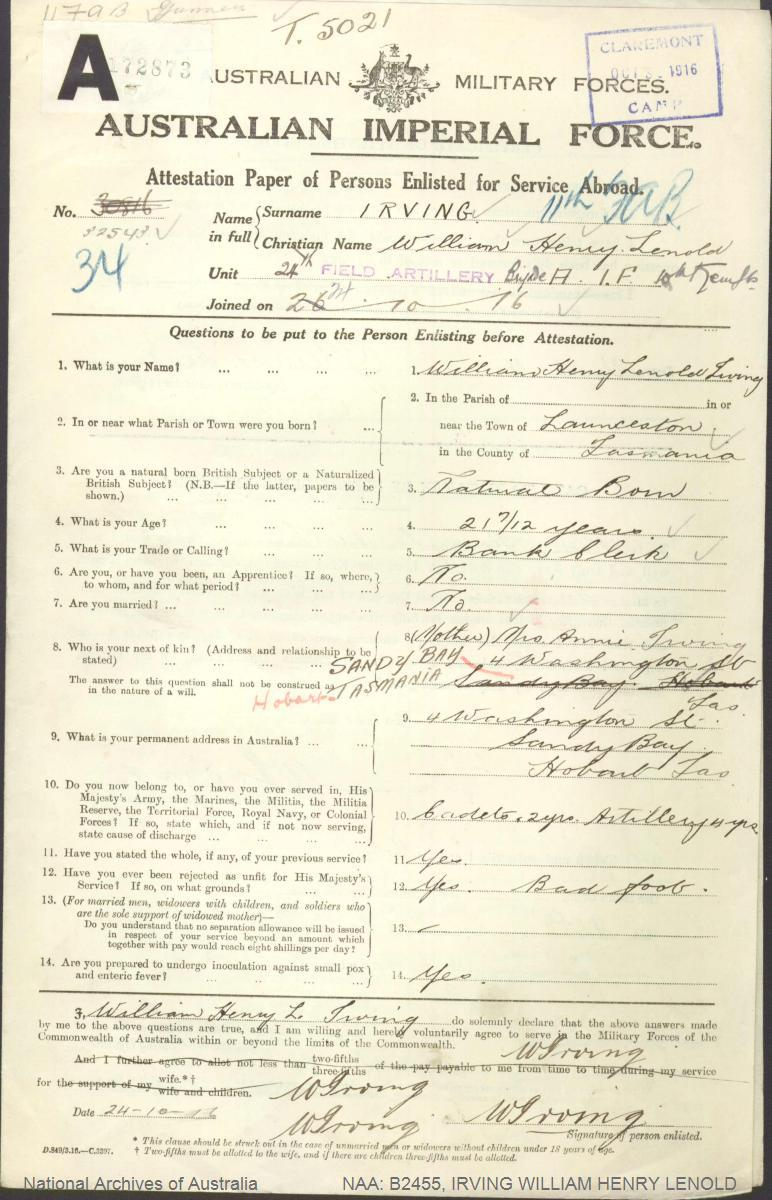 117AB Gunner
T. 5021
A 172873
AUSTRALIAN MILITARY FORCES.
CLAREMONT
OCT 1916
CAMP
AUSTRALIAN IMPERIAL FORCE.
Attestation Paper of Persons Enlisted for Service Abroad.
No. 30816
32543
34
Name in full { Surname IRVING
11th FAB
Christian Name William Henry Lenold
Unit 24th FIELD ARTILLERY Brigde A.I.F.
Joined on 24 . 10 . 16
Questions to be put to the Person Enlisting before Attestation.
1. What is your Name? ... ... ... ... 1. William Henry Lenold Irving
2. In or near what Parish or Town were you born? ... 2. In the Parish of in or
near the Town of Launceston
in the County of Tasmania
3. Are you a natural born British Subject or a Naturalized
British Subject? (N.B.—If the latter, papers to be
shown.) ... ... ... ... ... 3. Natural Born
4. What is your Age? ... ... ... ... 4. 21 7/12 years
5. What is your Trade or Calling? ... ... ... 5. Bank Clerk
6. Are you, or have you been, an Apprentice? If so, where,
to whom, and for what period? ... ... ... 6. No.
7. Are you married? ... ... ... ... ... 7. No.
8. Who is your next of kin? (Address and relationship to be
stated) ... ... ... 8 (Mother) Mrs. Annie Irving
SANDY BAY 4 Washington St
The answer to this question shall not be construed as
in the nature of a will.
Hobart TASMANIA
Sandy Bay. Hobart
Tas.
9. What is your permanent address in Australia? ... ... 9. 4 Washington St.
Sandy Bay.
Hobart Tas
10. Do you now belong to, or have you ever served in, His
Majesty's Army, the Marines, the Militia, the Militia
Reserve, the Territorial Force, Royal Navy, or Colonial
Forces? If so, state which, and if not now serving,
state cause of discharge ... ... ... ... 10. Cadets. 2yrs. Artillery 4 yrs
11. Have you stated the whole, if any, of your previous service? 11 Yes.
12. Have you ever been rejected as unfit for His Majesty's
Service? If so, on what grounds? ... ... 12. Yes. Bad foot.
13. (For married men, widowers with children, and soldiers who
are the sole support of widowed mother)—
Do you understand that no separation allowance will be issued
in respect of your service beyond an amount which
together with pay would reach eight shillings per day? 13. –
14. Are you prepared to undergo inoculation against small pox
and enteric fever? ... ... ... ... 14. Yes.
I, William Henry L. Irving do solemnly declare that the above answers made
by me to the above questions are true, and I am willing and hereby voluntarily agree to serve in the Military Forces of the
Commonwealth of Australia within or beyond the limits of the Commonwealth.
WIrving
And I further agree to allot not less than two-fifths three-fifths of the pay payable to me from time to time during my service
for the support of my wife.*† wife and children.
WIrving
Date 24-10-16
WIrving
WIrving
Signature of person enlisted.
D.849/3.16.—C.3397.
* This clause should be struck out in the case of unmarried men or widowers without children under 18 years of age.
† Two-fifths must be allotted to the wife, and if there are children three-fifths must be allotted.
National Archives of Australia
NAA: B2455, IRVING WILLIAM HENRY LENOLD